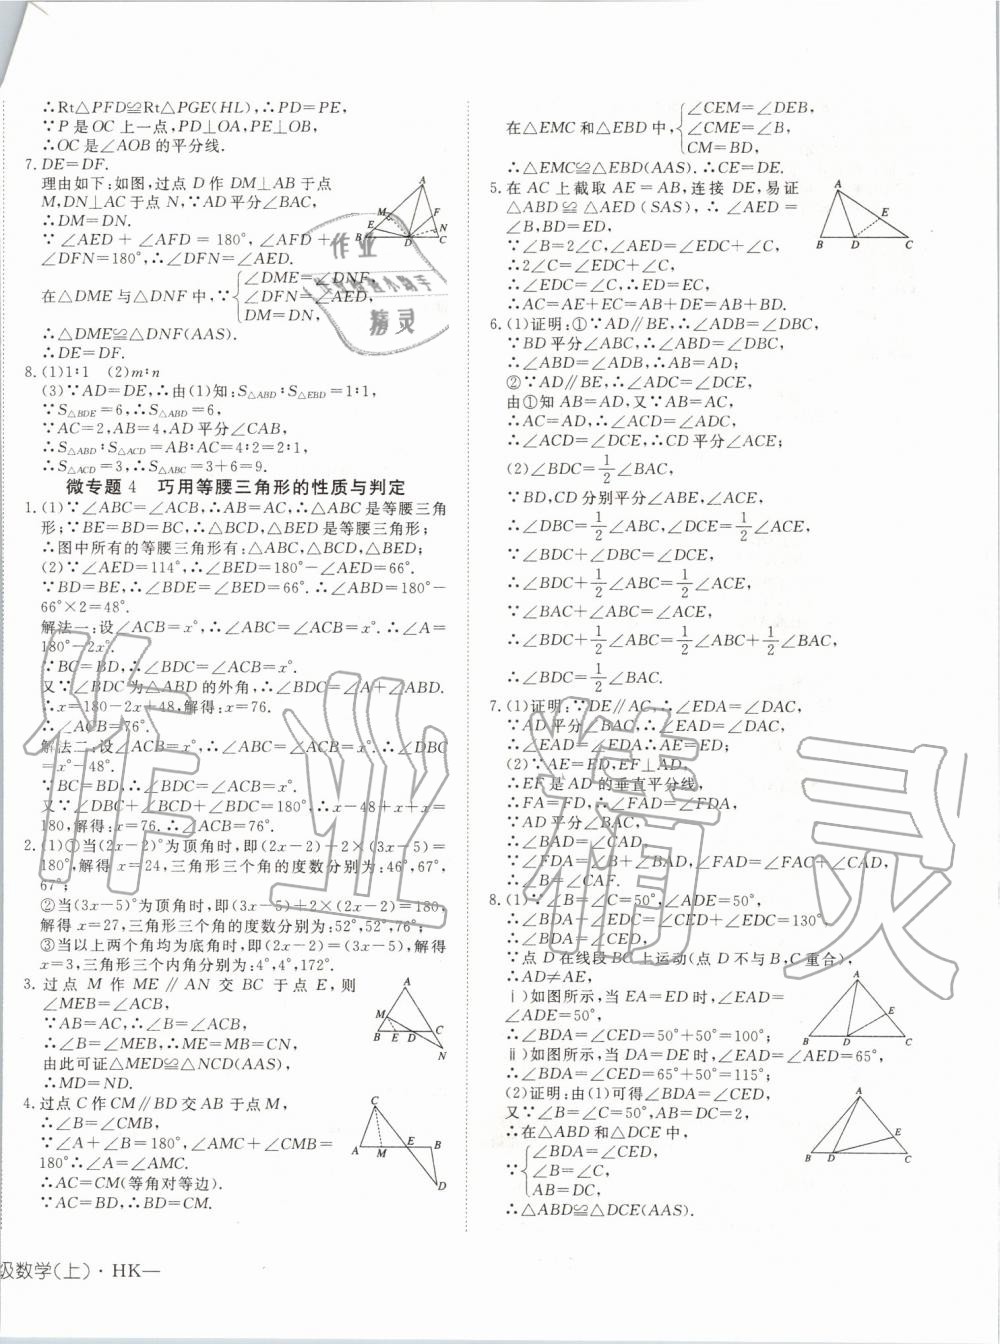 ∴Rt△PFD≌Rt△PGE(HL),∴PD=PE,
∵P是OC上一点,PD⊥OA,PE⊥OB,
∴OC是∠AOB的平分线.
7. DE=DF.
理由如下:如图,过点D作DM⊥AB于点
M,DN⊥AC于点N,∵AD平分∠BAC,
∴DM=DN.
∵∠AED+∠AFD=180°,∠AFD+
∠DFN=180°,∴∠DFN=∠AED.
在△DME与△DNF中,∵{∠DME=∠DNF,
∠DFN=∠AED,
DM=DN,
∴△DME≌△DNF(AAS).
∴DE=DF.
8. (1)1∶1 (2)m∶n
(3)∵AD=DE,∴由(1)知:S△ABD∶S△EBD=1∶1,
∵S△BDE=6,∴S△ABD=6,
∵AC=2,AB=4,AD平分∠CAB,
∴S△ABD∶S△ACD=AB∶AC=4∶2=2∶1,
∴S△ACD=3,∴S△ABC=3+6=9.
微专题4 巧用等腰三角形的性质与判定
1. (1)∵∠ABC=∠ACB,∴AB=AC,∴△ABC是等腰三角
形;∵BE=BD=BC,∴△BCD,△BED是等腰三角形;
∴图中所有的等腰三角形有:△ABC,△BCD,△BED;
(2)∵∠AED=114°,∴∠BED=180°-∠AED=66°.
∵BD=BE,∴∠BDE=∠BED=66°.∴∠ABD=180°-
66°×2=48°.
解法一:设∠ACB=x°,∴∠ABC=∠ACB=x°.∴∠A=
180°-2x°.
∵BC=BD,∴∠BDC=∠ACB=x°.
又∵∠BDC为△ABD的外角,∴∠BDC=∠A+∠ABD.
∴x=180-2x+48,解得:x=76.
∴∠ACB=76°.
解法二:设∠ACB=x°,∴∠ABC=∠ACB=x°.∴∠DBC
=x°-48°.
∵BC=BD,∴∠BDC=∠ACB=x°.
又∵∠DBC+∠BCD+∠BDC=180°,∴x-48+x+x=
180,解得:x=76.∴∠ACB=76°.
2. (1)①当(2x-2)°为顶角时,即(2x-2)+2×(3x-5)=
180°,解得x=24,三角形三个角的度数分别为:46°,67°,
67°;
②当(3x-5)°为顶角时,即(3x-5)+2×(2x-2)=180,
解得x=27,三角形三个角的度数分别为:52°,52°,76°;
③当以上两个角均为底角时,即(2x-2)=(3x-5),解得
x=3,三角形三个内角分别为:4°,4°,172°.
3. 过点M作ME∥AN交BC于点E,则
∠MEB=∠ACB,
∵AB=AC,∴∠B=∠ACB,
∴∠B=∠MEB,∴ME=MB=CN,
由此可证△MED≌△NCD(AAS),
∴MD=ND.
4. 过点C作CM∥BD交AB于点M,
∴∠B=∠CMB,
∵∠A+∠B=180°,∠AMC+∠CMB=
180°∴∠A=∠AMC.
∴AC=CM(等角对等边).
∵AC=BD,∴BD=CM.
级数学(上)·HK—
在△EMC和△EBD中,{∠CEM=∠DEB,
∠CME=∠B,
CM=BD,
∴△EMC≌△EBD(AAS).∴CE=DE.
5. 在AC上截取AE=AB,连接DE,易证
△ABD≌△AED(SAS),∴∠AED=
∠B,BD=ED,
∵∠B=2∠C,∠AED=∠EDC+∠C,
∴2∠C=∠EDC+∠C,
∴∠EDC=∠C,∴ED=EC,
∴AC=AE+EC=AB+DE=AB+BD.
6. (1)证明:①∵AD∥BE,∴∠ADB=∠DBC,
∵BD平分∠ABC,∴∠ABD=∠DBC,
∴∠ABD=∠ADB,∴AB=AD;
②∵AD∥BE,∴∠ADC=∠DCE,
由①知AB=AD,又∵AB=AC,
∴AC=AD,∴∠ACD=∠ADC,
∴∠ACD=∠DCE,∴CD平分∠ACE;
(2)∠BDC=1/2∠BAC,
∵BD,CD分别平分∠ABE,∠ACE,
∴∠DBC=1/2∠ABC,∠DCE=1/2∠ACE,
∵∠BDC+∠DBC=∠DCE,
∴∠BDC+1/2∠ABC=1/2∠ACE,
∵∠BAC+∠ABC=∠ACE,
∴∠BDC+1/2∠ABC=1/2∠ABC+1/2∠BAC,
∴∠BDC=1/2∠BAC.
7. (1)证明:∵DE∥AC,∴∠EDA=∠DAC,
∵AD平分∠BAC,∴∠EAD=∠DAC,
∴∠EAD=∠EDA∴AE=ED;
(2)∵AE=ED,EF⊥AD,
∴EF是AD的垂直平分线,
∴FA=FD,∴∠FAD=∠FDA,
∵AD平分∠BAC,
∴∠BAD=∠CAD,
∵∠FDA=∠B+∠BAD,∠FAD=∠FAC+∠CAD,
∴∠B=∠CAF.
8. (1)∵∠B=∠C=50°,∠ADE=50°,
∴∠BDA+∠EDC=∠CED+∠EDC=130°,
∴∠BDA=∠CED,
∵点D在线段BC上运动(点D不与B,C重合),
∴AD≠AE,
ⅰ)如图所示,当EA=ED时,∠EAD=
∠ADE=50°,
∴∠BDA=∠CED=50°+50°=100°;
ⅱ)如图所示,当DA=DE时,∠EAD=∠AED=65°,
∴∠BDA=∠CED=65°+50°=115°;
(2)证明:由(1)可得∠BDA=∠CED,
又∵∠B=∠C=50°,AB=DC=2,
∴在△ABD和△DCE中,
∵{∠BDA=∠CED,
∠B=∠C,
AB=DC,
∴△ABD≌△DCE(AAS).
作业
精灵
作业精灵